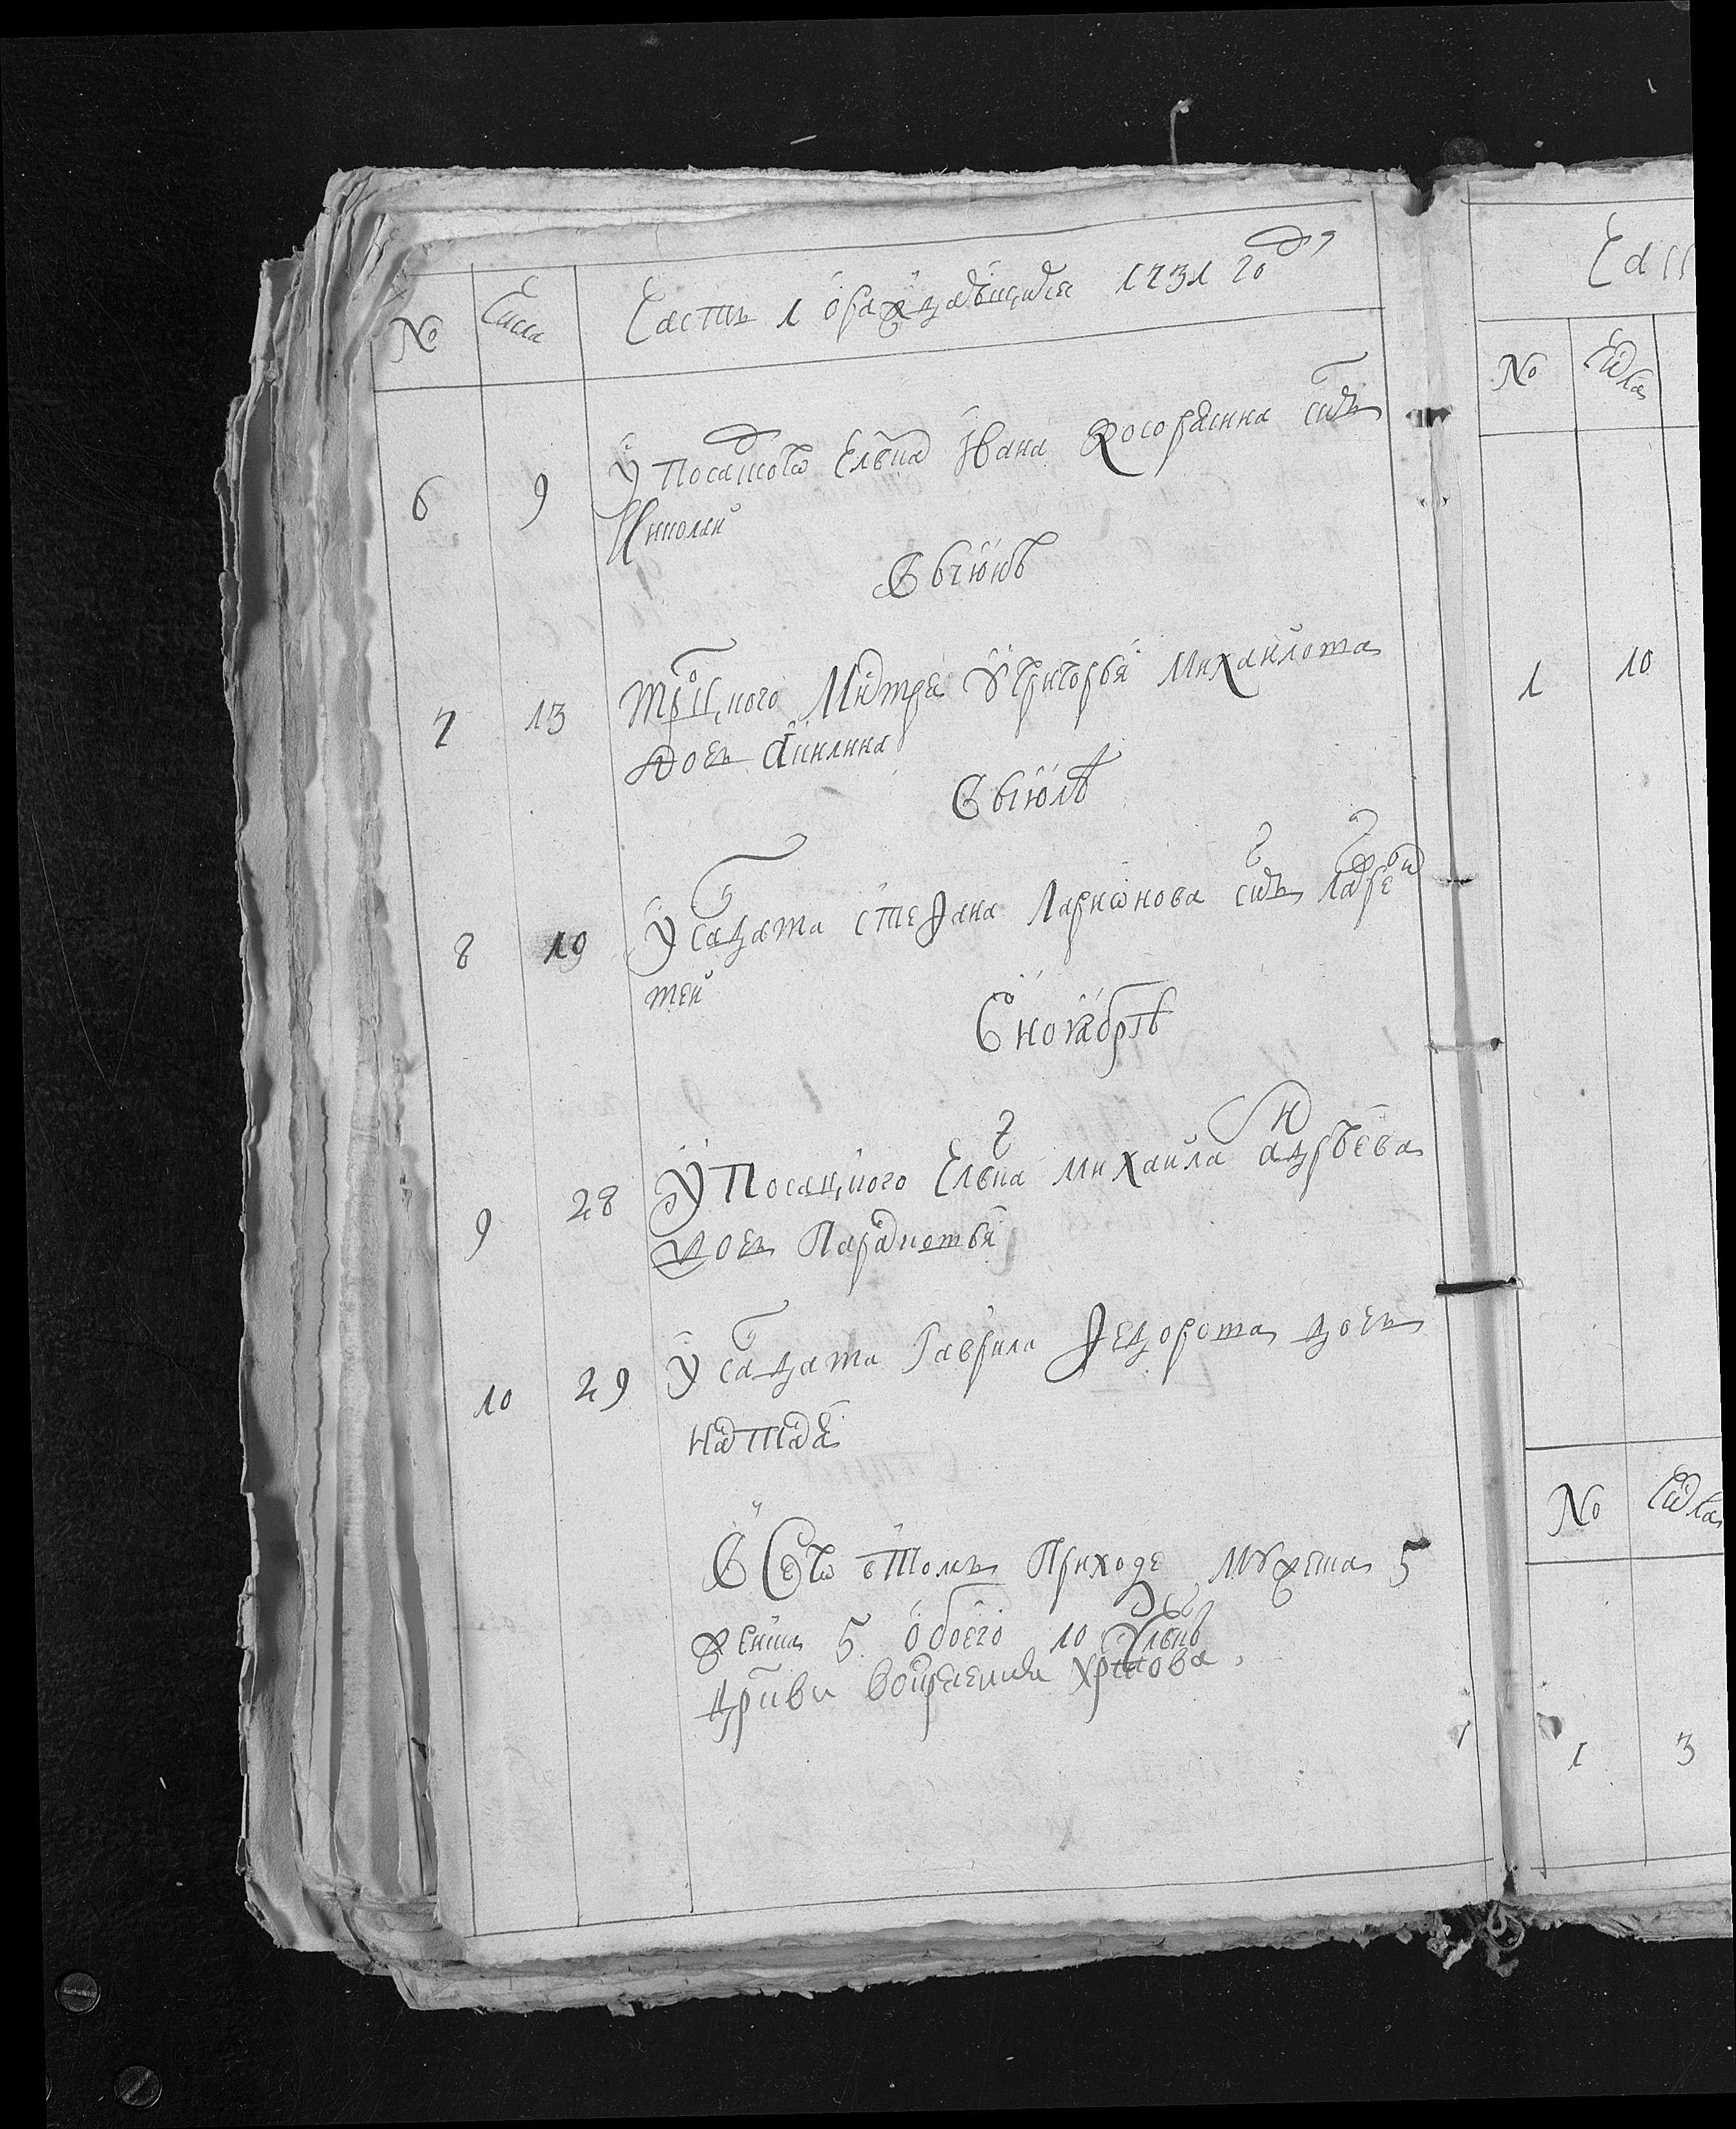 № Числа Часть 1 о раждающихся 1731 год
6 9 У посацкого члвка Ивана сынъ
Николай
В июнѣ
7 13 Троицкого У Григорья Михаилова
дочь Акилина
В июлѣ
8 19 У салдата Стефана Ларионова сынъ Лавре
тей
В ноябрѣ
9 28 У посацкого члвка Михаила Андрѣева
дочь Парасковья
10 29 У салдата Гаврила Федорова дочь
Наталья
Всего в томъ приходе мужеска 5
женска 5 обоего 10 члвкъ
Црквı Воскресения Христова
№ Числа
1 10
№ Числа
1 3